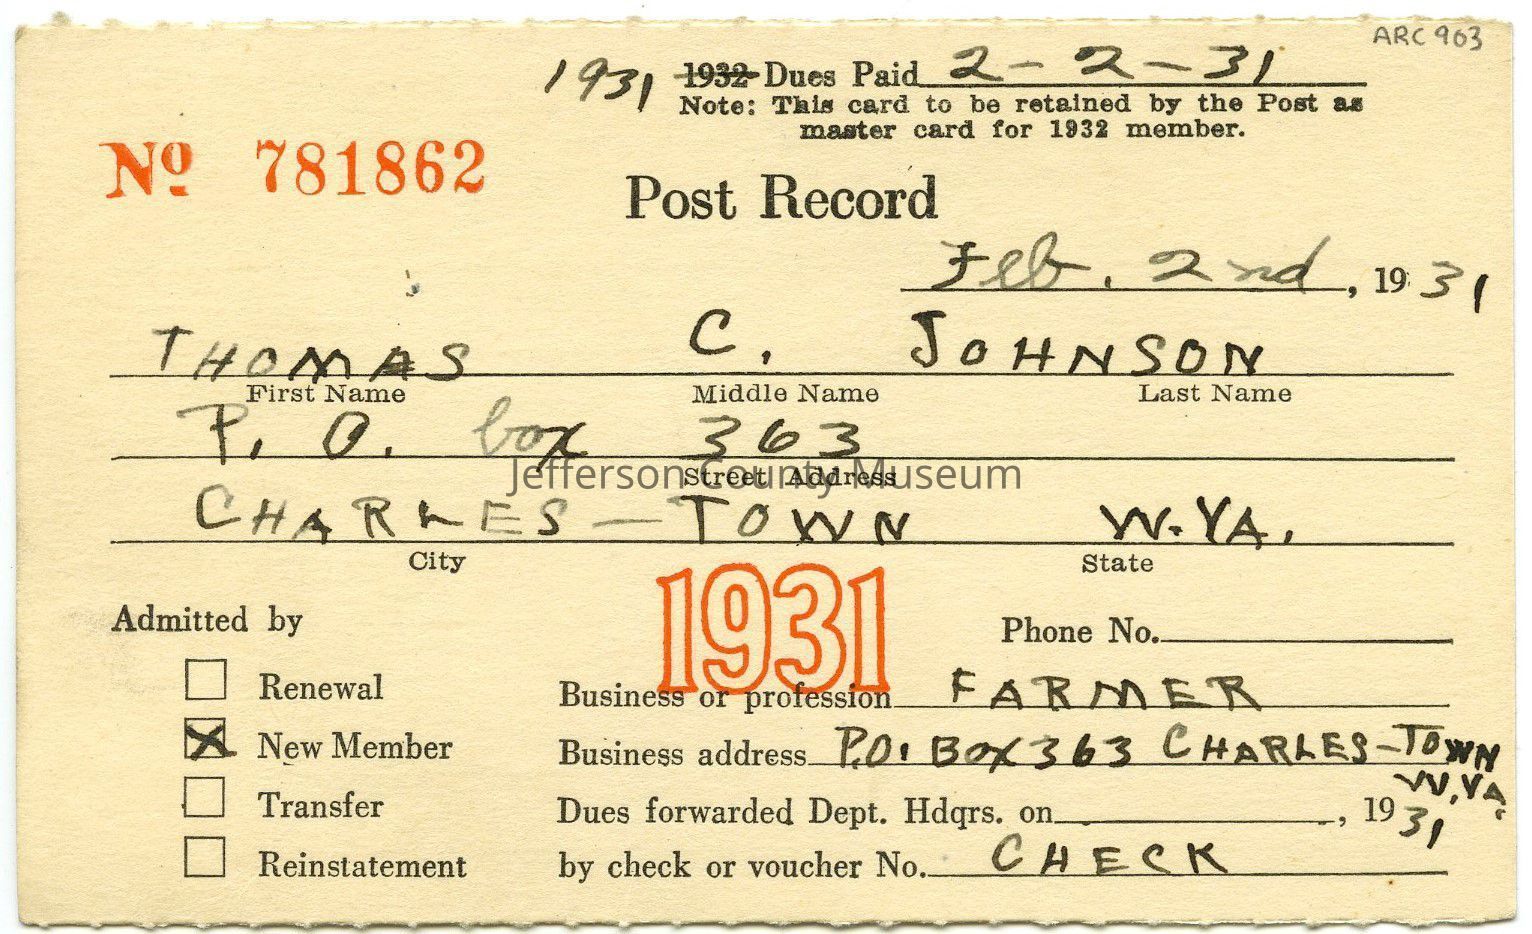 ARC 903
1931 1932 Dues Paid 2-2-31
Note: This card to be retained by the Post as
master card for 1932 member.
No 781862
Post Record
Feb. 2nd, 1931
THOMAS C. JOHNSON
First Name Middle Name Last Name
P. O. box 363
Street Address
Jefferson County Museum
CHARLES-TOWN W.VA.
City State
1931
Admitted by
Phone No.
Renewal
Business or profession FARMER
New Member
Business address P.O. BOX 363 CHARLES-TOWN
W.VA.
Transfer
Dues forwarded Dept. Hdqrs. on , 1931
Reinstatement
by check or voucher No. CHECK